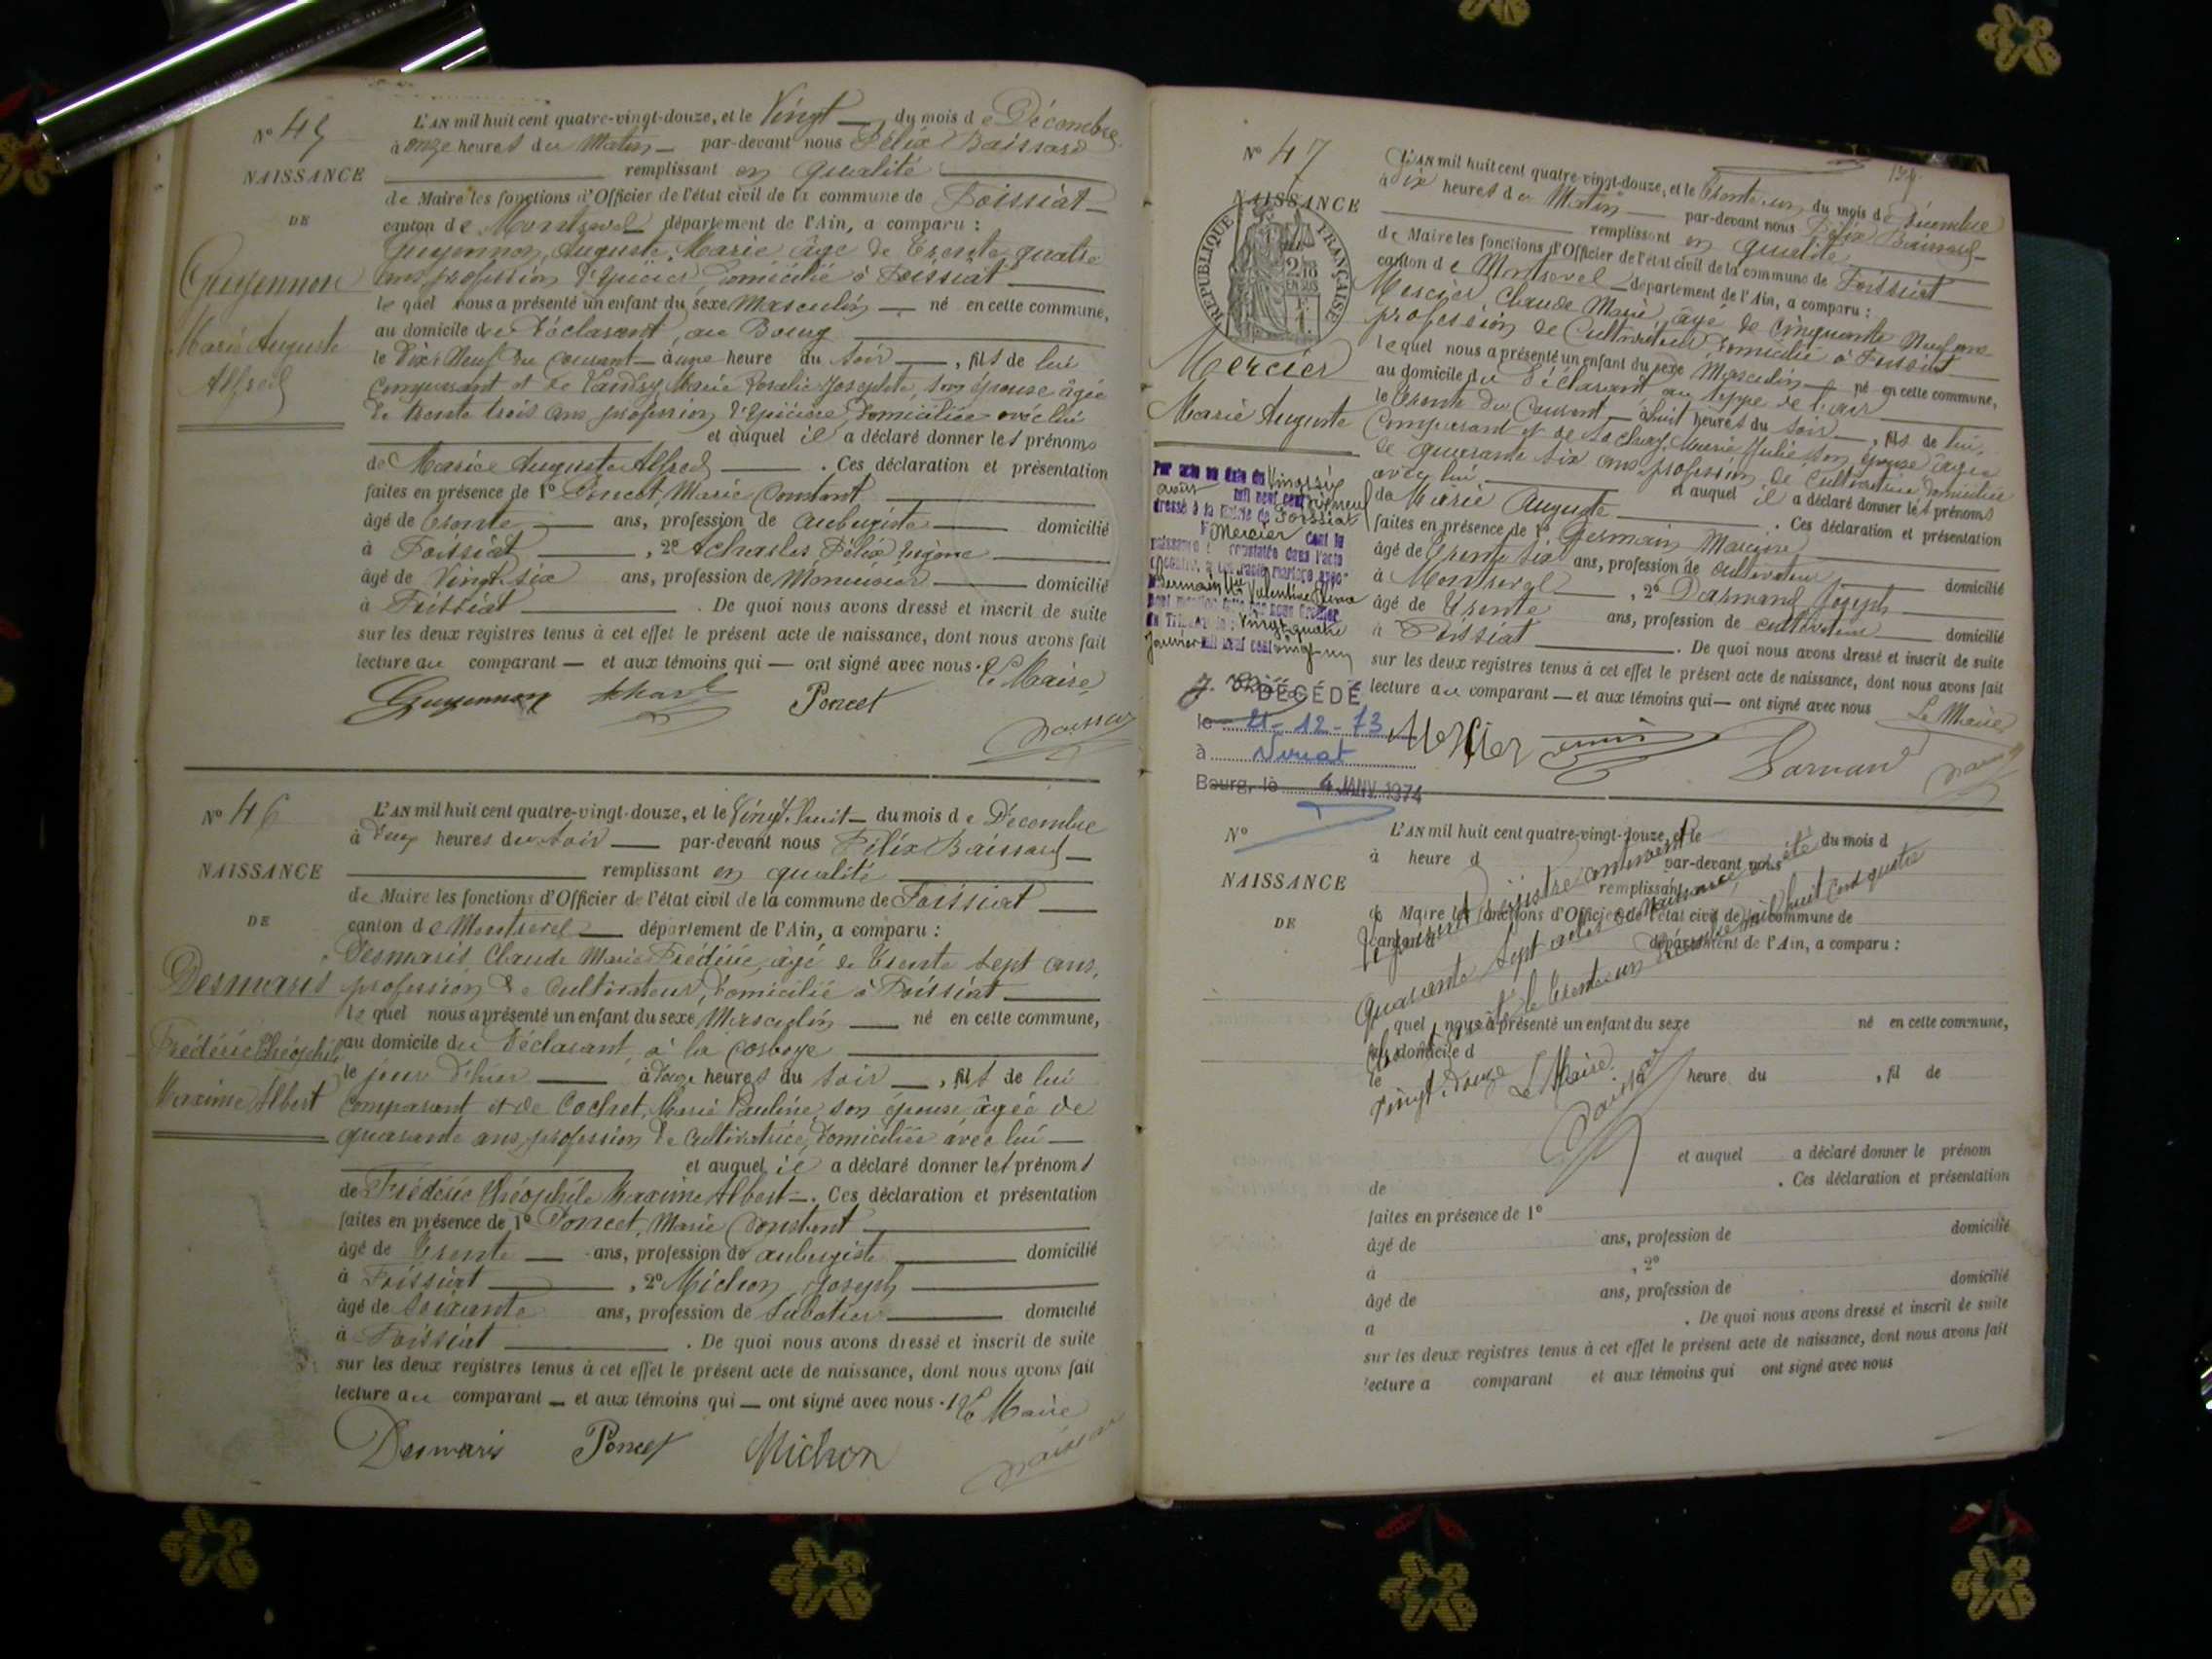 N° 45
NAISSANCE
DE
Guyennon
Marie Auguste
Alfred
L'AN mil huit cent quatre-vingt-douze, et le Vingt du mois de Décembre
à onze heures du Matin par-devant nous Félix Baissard
remplissant en qualité
de Maire les fonctions d'Officier de l'état civil de la commune de Foissiat
canton de Montrevel département de l'Ain, a comparu :
Guyennon, Auguste Marie âgé de Trente quatre
ans profession d'Epicier domicilié à Foissiat
lequel nous a présenté un enfant du sexe Masculin né en cette commune,
au domicile du déclarant, au Bourg
le Dix Neuf du courant à une heure du soir, fils de lui
Comparant et de Marie Rosalie Josephte, son épouse âgée
de trente trois ans profession d'Epicière, domiciliée avec lui
et auquel il a déclaré donner les prénoms
de Marie Auguste Alfred. Ces déclaration et présentation
faites en présence de 1° Poncet, Marie Constant
âgé de trente ans, profession de aubergiste domicilié
à Foissiat, 2° Félix Eugène
âgé de Vingt-six ans, profession de Menuisier domicilié
à Foissiat. De quoi nous avons dressé et inscrit de suite
sur les deux registres tenus à cet effet le présent acte de naissance, dont nous avons fait
lecture au comparant et aux témoins qui ont signé avec nous. Le Maire,
Guyennon Poncet
N° 46
NAISSANCE
DE
Desmaris
Frédéric Théophile
Maxime Albert
L'AN mil huit cent quatre-vingt-douze, et le Vingt-huit du mois de Décembre
à deux heures du soir par-devant nous Félix Baissard
remplissant en qualité
de Maire les fonctions d'Officier de l'état civil de la commune de Foissiat
canton de Montrevel département de l'Ain, a comparu :
Desmaris Claude Marie Frédéric, âgé de trente sept ans,
profession de Cultivateur, domicilié à Foissiat
lequel nous a présenté un enfant du sexe Masculin né en cette commune,
au domicile du déclarant, à la
le jour d'hier à heures du soir, fils de lui
Comparant et de Cochet, Marie Pauline, son épouse âgée de
quarante ans, profession de cultivatrice, domiciliée avec lui
et auquel il a déclaré donner les prénoms
de Frédéric Théophile Maxime Albert. Ces déclaration et présentation
faites en présence de 1° Poncet, Marie Constant
âgé de trente ans, profession de aubergiste domicilié
à Foissiat, 2° Michon Joseph
âgé de soixante ans, profession de sabotier domicilié
à Foissiat. De quoi nous avons dressé et inscrit de suite
sur les deux registres tenus à cet effet le présent acte de naissance, dont nous avons fait
lecture au comparant et aux témoins qui ont signé avec nous. Le Maire
Desmaris Poncet Michon
N° 47
NAISSANCE
RÉPUBLIQUE FRANÇAISE
Mercier
Marie Auguste
L'AN mil huit cent quatre-vingt-douze, et le trente-un du mois de Décembre
à dix heures du Matin par-devant nous Félix Baissard
remplissant en qualité
de Maire les fonctions d'Officier de l'état civil de la commune de Foissiat
canton de Montrevel département de l'Ain, a comparu :
Mercier, Claude Marie, âgé de cinquante Neuf ans
profession de Cultivateur domicilié à Foissiat
lequel nous a présenté un enfant du sexe Masculin né en cette commune,
au domicile du déclarant, au
le trente du Courant à huit heures du soir, fils de lui,
Comparant et de Marie Julie son épouse âgée
de quarante six ans, profession de Cultivatrice domiciliée
avec lui, et auquel il a déclaré donner les prénoms
de Marie Auguste. Ces déclaration et présentation
faites en présence de 1° Germain
âgé de trente six ans, profession de cultivateur domicilié
à Montrevel, 2° Joseph
âgé de trente ans, profession de cultivateur domicilié
à Foissiat. De quoi nous avons dressé et inscrit de suite
sur les deux registres tenus à cet effet le présent acte de naissance, dont nous avons fait
lecture au comparant et aux témoins qui ont signé avec nous Le Maire
Mercier
Par acte en date du Vingt six
août mil neuf cent
dressé à la mairie de Foissiat
Mercier dont la
naissance constatée dans l'acte
Valentine
Vingt quatre
Janvier mil neuf cent vingt un
DÉCÉDÉ
le 21-12-73
à
Bourg, le 4 JANV. 1974
N°
NAISSANCE
DE
L'AN mil huit cent quatre-vingt-douze, et le du mois d
à heure d par-devant nous
remplissant
de Maire les fonctions d'Officier de l'état civil de la commune de
canton d département de l'Ain, a comparu :
quel nous a présenté un enfant du sexe né en cette commune,
au domicile d
le heure du , fil de
et auquel a déclaré donner le prénom
de . Ces déclaration et présentation
faites en présence de 1°
âgé de ans, profession de domicilié
à , 2°
âgé de ans, profession de domicilié
à . De quoi nous avons dressé et inscrit de suite
sur les deux registres tenus à cet effet le présent acte de naissance, dont nous avons fait
lecture a comparant et aux témoins qui ont signé avec nous
Le présent Registre contenant
Quarante sept actes de Naissance, été
clos et arrêté le trente un Décembre mil huit cent quatre
vingt douze Le Maire